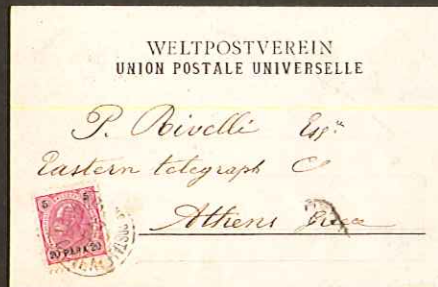 WELTPOSTVEREIN
UNION POSTALE UNIVERSELLE
P. Rivelli Esqre
Eastern telegraph Co
Athens Greece
5 5
20 PARA 20